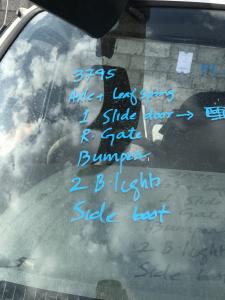 3795
Axle + Leaf Spring
1 Slide door →
R. Gate
Bumper
2 B. lights
Side boot